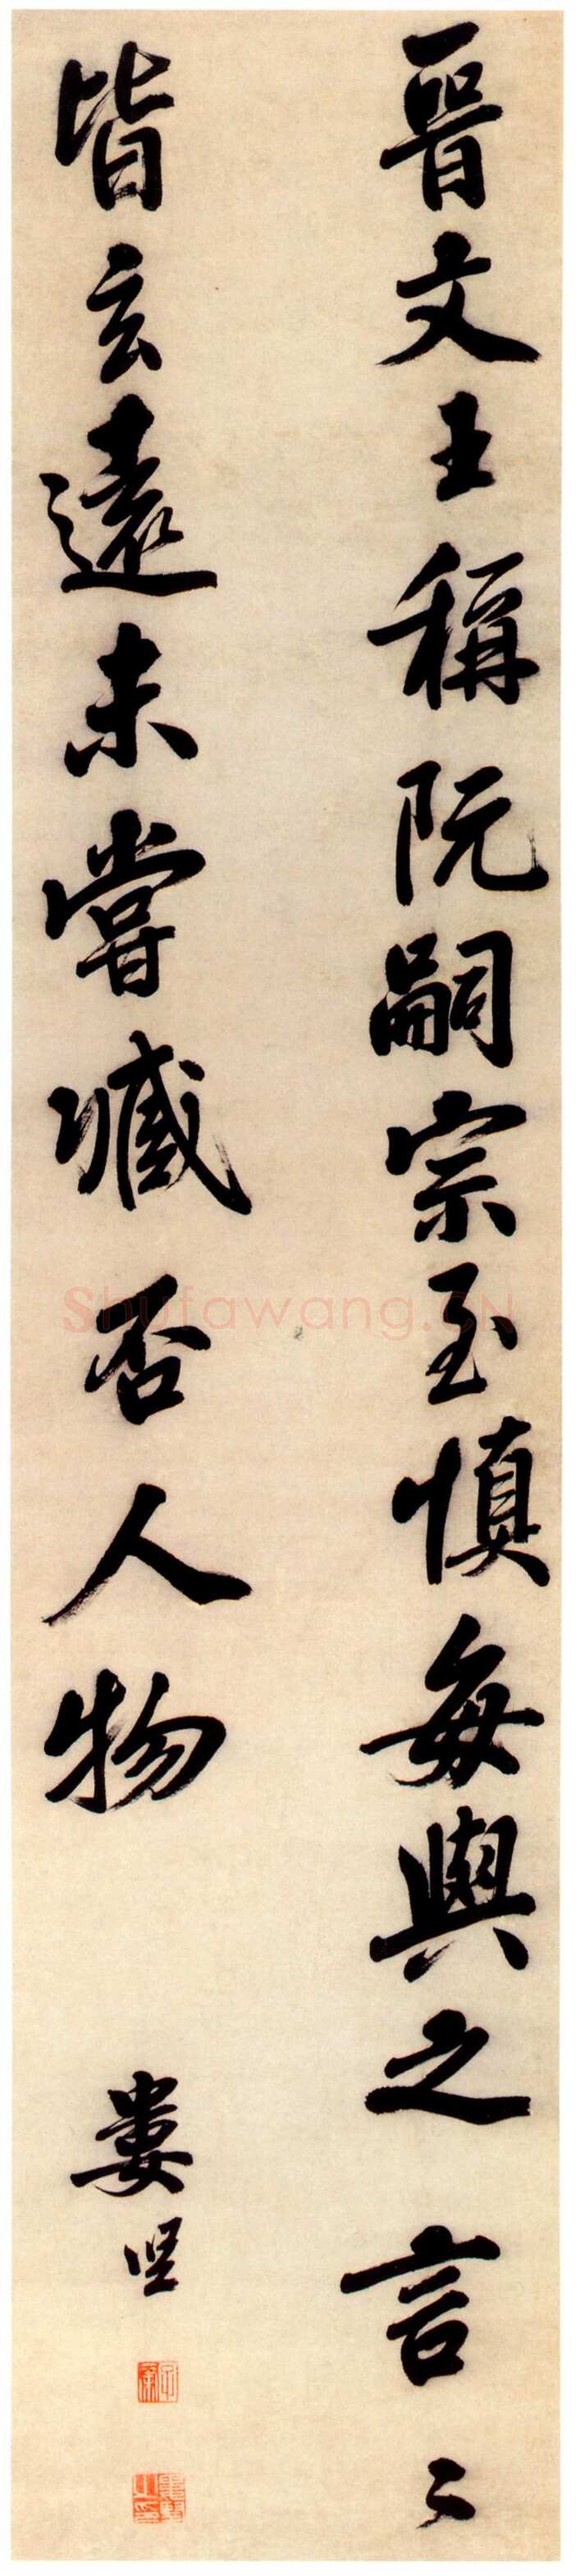 晉文王稱阮嗣宗至慎每與之言〻
皆玄遠未嘗臧否人物
婁堅
Shufawang.CN